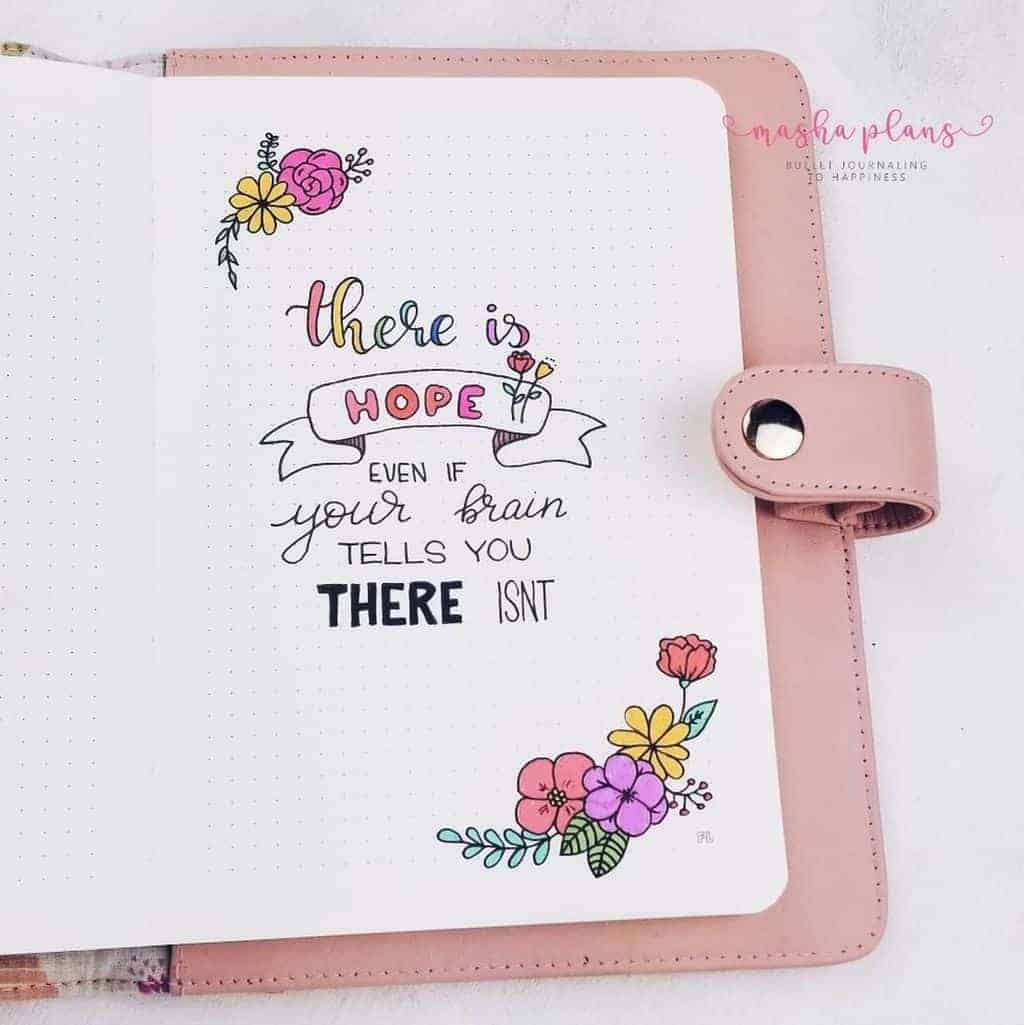 masha plans
BULLET JOURNALING
TO HAPPINESS
there is
HOPE
EVEN IF
your brain
TELLS YOU
THERE ISNT
FL